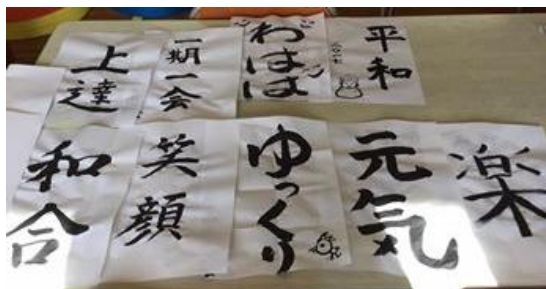 上達
一期一会
わはは
平和
二〇一七
和合
笑顔
ゆっくり
元気
楽